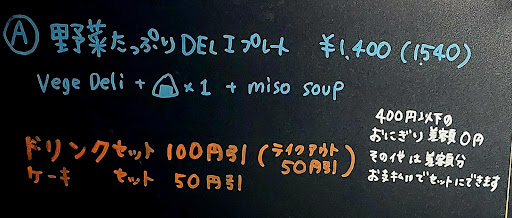 Ⓐ 野菜たっぷりDELIプレート ¥1,400 (1540)
Vege Deli + 🍙×1 + miso soup
ドリンクセット 100円引 (テイクアウト 50円引)
ケーキ セット 50円引
400円以下の
おにぎり差額0円
その他は差額分
お支払いでセットにできます